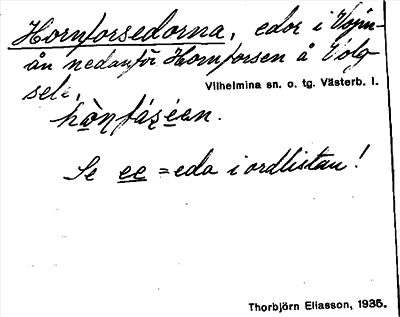 Hornforsedorna, edor i Vojm-
ån nedanför Hornforsen å Volg-
sele,
Vilhelmina sn. o. tg. Västerb. l.
Se ee = eda i ordlistan!
Thorbjörn Eliasson, 1935.